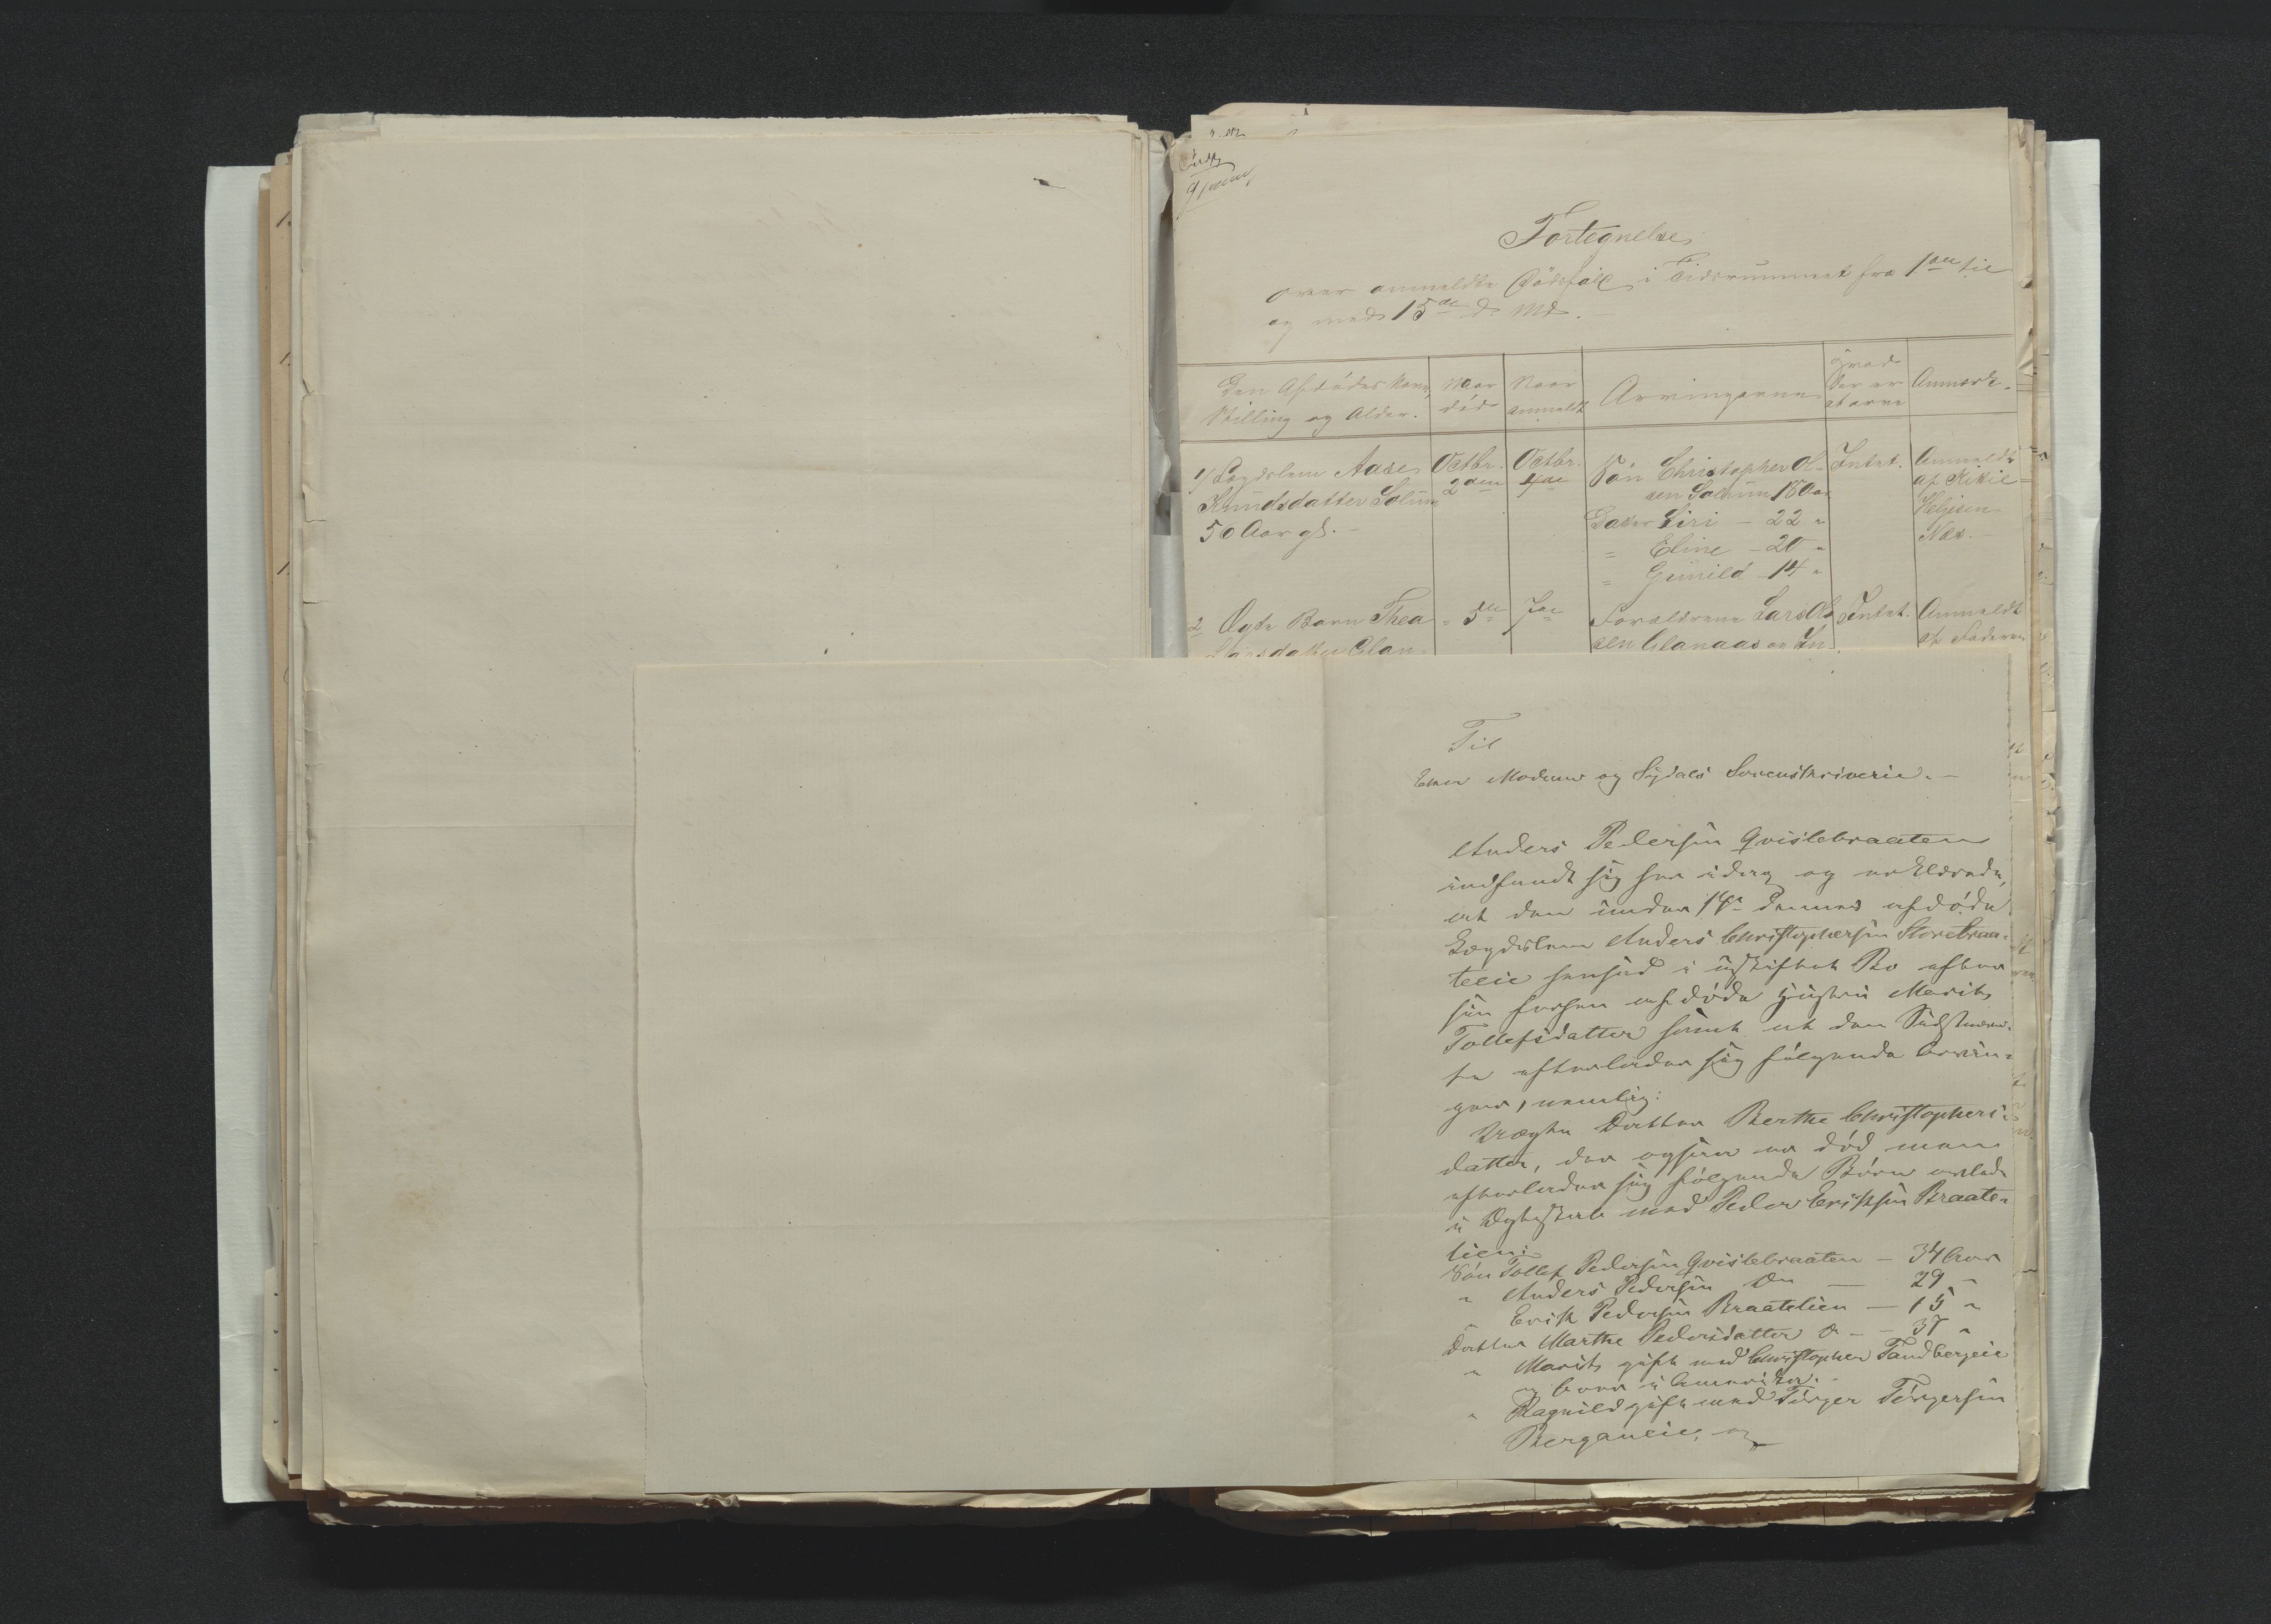 Fortegnelse
over anmeldte Dødsfald i Tidsrummet fra 1ste til
og med 15de d. Md.
Den Afdødes Navn,
Stilling og Alder.
Naar
død
Naar
anmeldt
Arvingerne
Hvad
der er
at arve
Anmærk-
1/ Lægdslem Aase
Knudsdatter Solum
50 Aar gl. -
Octbr.
2den
Octbr.
4de
Søn Christopher Ol-
sen Solum 18 Aar
Datter Siri - 22 "
" Eline - 20 "
" Gunild - 14 "
Intet.
Anmeldt
af Kittil
Helgesen
Næs. -
2 Ægte Barn Thea
Larsdatter
" 5te
7de
Forældrene Lars Ol-
sen Glanaas og
Intet.
Anmeldt
af Faderen
Til
Eker Modum og Sigdals Sorenskriveri. -
Anders Pedersen Qvislebraaten
indfandt sig her idag og erklærede,
at den under 14de dennes afdøde
Lægdslem Anders Christophersen Storebraa-
teeie hensad i uskiftet Bo efter
sin forhen afdøde Hustru Marit
Tollefsdatter samt at den Sidstnævn-
te efterlader sig følgende Arvin-
ger, nemlig:
Uægte Datter Berthe Christophers-
datter, der ogsaa er død men
efterlader sig følgende Børn avlede
i Ægteskab med Peder Eriksen Braate-
lien:
Søn Tollef Pedersen Qvislebraaten - 34 Aar
" Anders Pedersen Do - 29 "
" Erik Pedersen Braatelien - 15 "
Datter Marthe Pedersdatter Do - - 37 "
" Marit, gift med Christopher Tandbergeie
og boer i Amerika. -
" Ragnild gift med Törger Törgersen
Berganeie, og